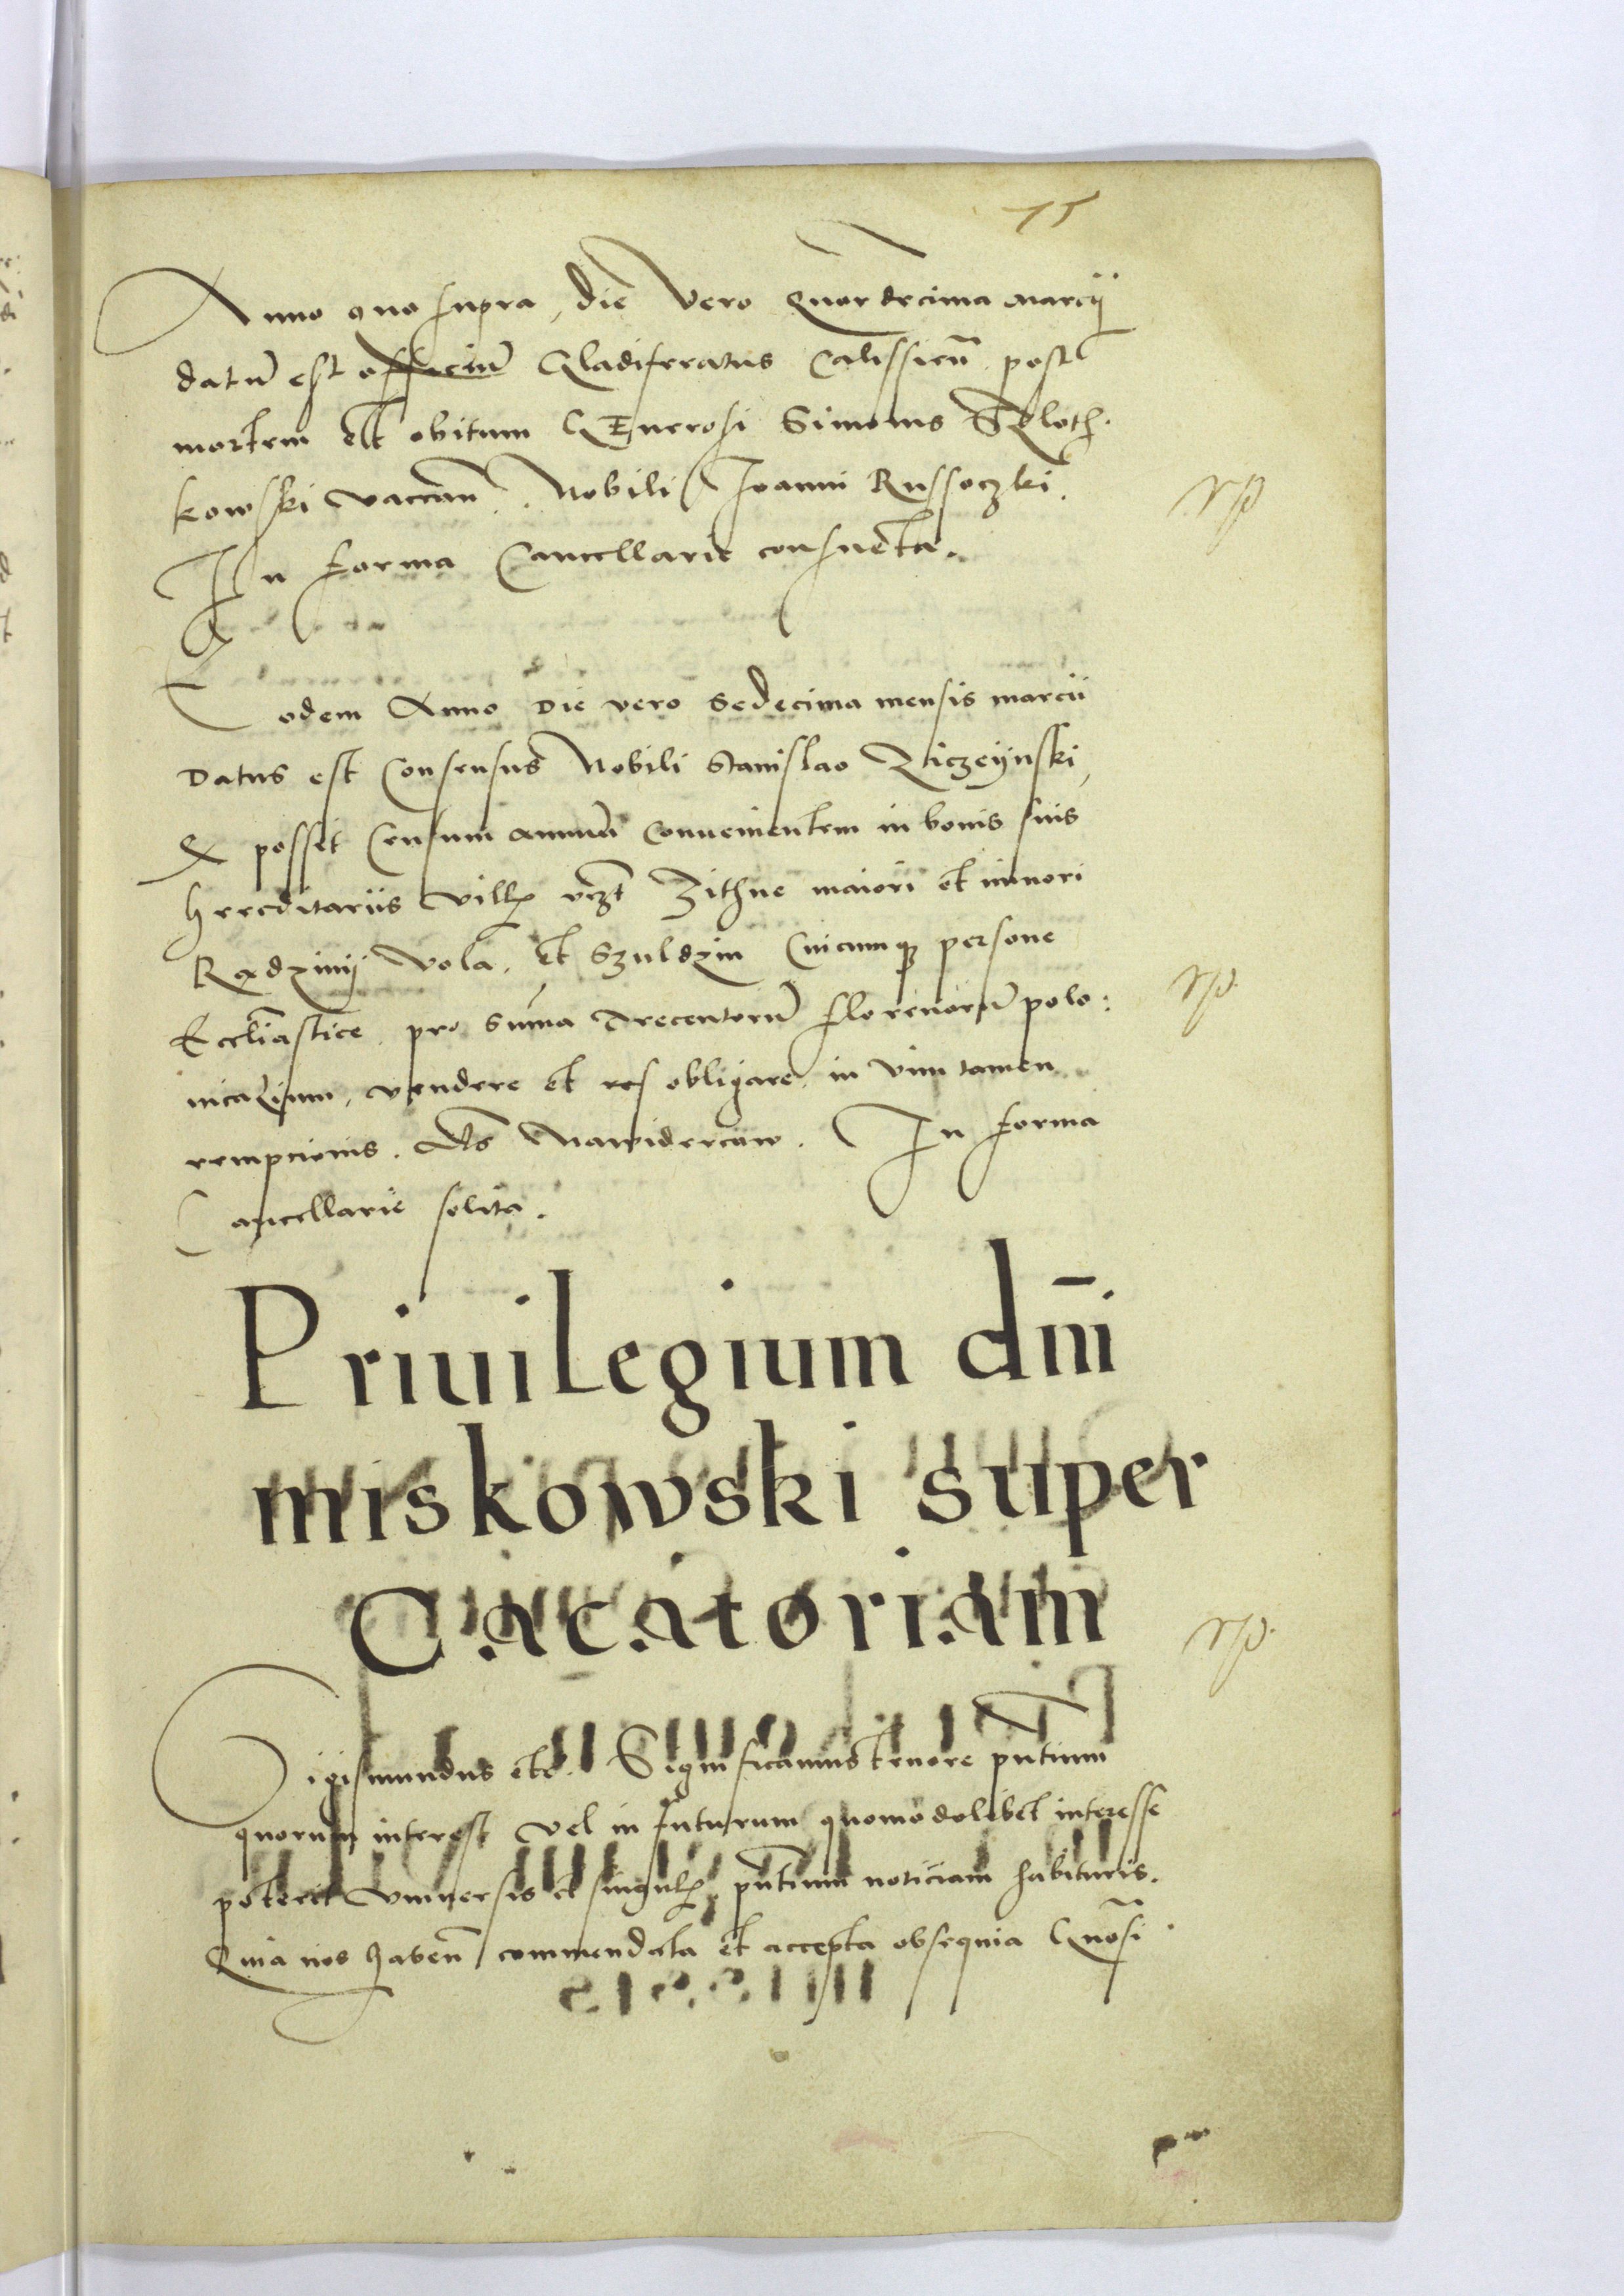 15
Anno quo supra, die vero Quardecima marcij
datũ est officiũ Gladiferatus Calissieñ post
mortem et obitum GEnerosi Simonis Sloth.
kowski vaccañ. Nobili Joanni Russoczki.
In forma Cancellarie consueta.
rp
Eodem Anno Die vero sedecima mensis marcii
Datus est Consensus Nobili Stanislao
posset Censum annuũ conuenientem in bonis suis
hereditariis vill vzt Zithne maiori et minori
Radzimij Vola. et Szuldzin Cuicumq persone
rp.
Eccliastice pro suma trecentorũ florenorũ polo:
nicalium, vendere et res obligare in vim tamen
rempcionis. Als Nawiderconw. In forma
Cancellarie solita.
Priuilegium dm̄i
miskowski super
Cacatoriam
rp.
Sigismundus etc. Significamus tenore pñtium
quorum interest vel in futurum quomodolibet interesse
poterit vniuersis et singul pñtium noticiam habituris.
Quia nos habeñ commendata et accepta obsequia Gnosi